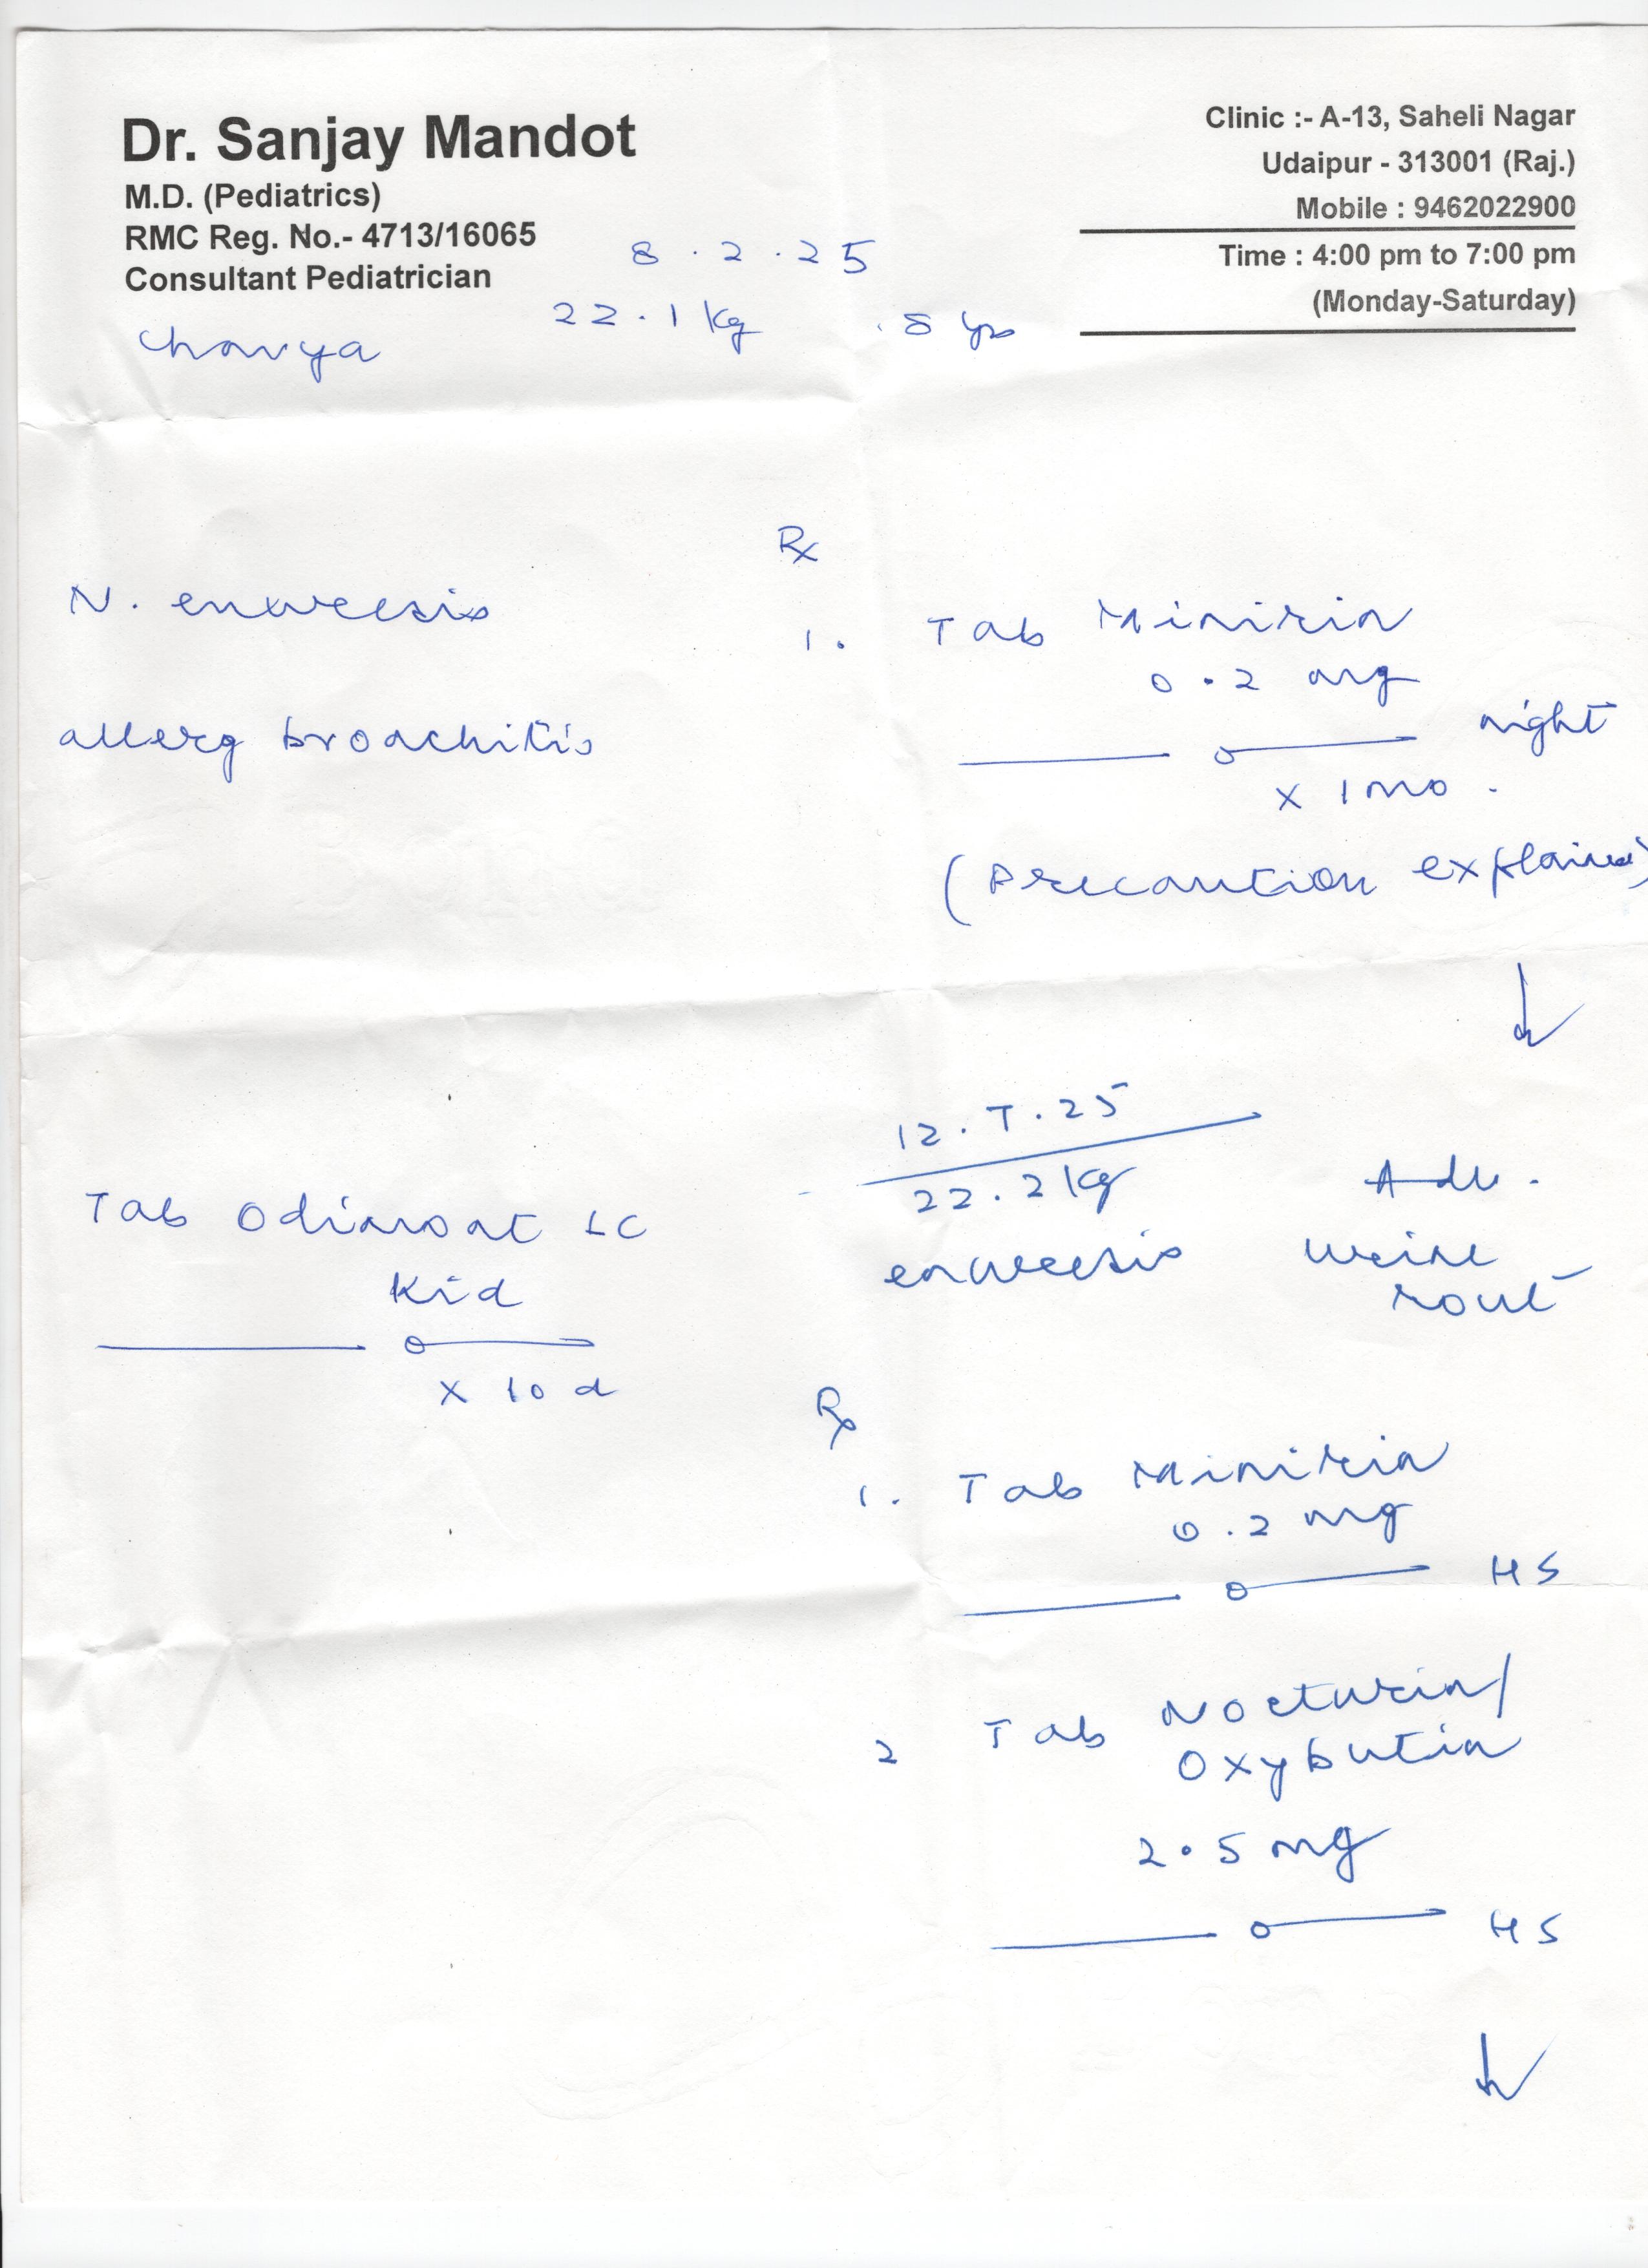 Dr. Sanjay Mandot
M.D. (Pediatrics)
RMC Reg. No.- 4713/16065
Consultant Pediatrician
Clinic :- A-13, Saheli Nagar
Udaipur - 313001 (Raj.)
Mobile : 9462022900
Time : 4:00 pm to 7:00 pm
(Monday-Saturday)
8.2.25
22.1 kg
Rx
N. enuresis
1. Tab Minirin
0.2 mg
allerg bronchitis
night
x 1 mo.
(Precaution explained)
12.7.25
22.2 kg
Adv.
enuresis
urine
rout
Tab Odimont LC
Kid
x 10 d
Rx
1. Tab Minirin
0.2 mg
HS
2 Tab Nocturin/
Oxybutin
2.5 mg
HS